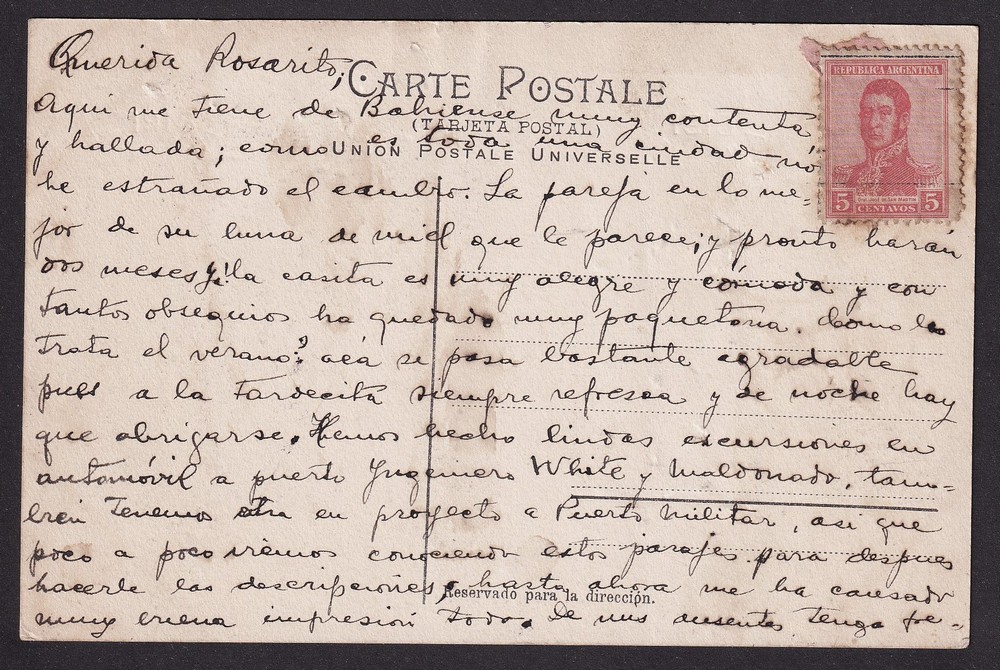 Querida Rosarito;
CARTE POSTALE
REPUBLICA ARGENTINA
Aqui me tiene de Bahiense muy contenta
(TARJETA POSTAL)
y hallada; como es toda una ciudad nó
UNION POSTALE UNIVERSELLE
he estrañado el cambio. La pareja en lo me-
5 CENTAVOS 5
jor de su luna de miel que le parece; y pronto harán
dos meses y! la casita es muy alegre y cómoda y con
tantos obsequios ha quedado muy paquetona. Como los
trata el verano? acá se pasa bastante agradable
pues a la tardecita siempre refresca y de noche hay
que abrigarse. Hemos hecho lindas escursiones en
automóvil a puerto Yngeniero White y Maldonado, tam-
bien tenemos otra en proyecto a Puerto Militar, asi que
poco a poco iremos conociendo estos parajes para despues
hacerle las descripciones, hasta ahora me ha causado
Reservado para la dirección.
muy buena impresión todo. De mis ausentes tengo fre-